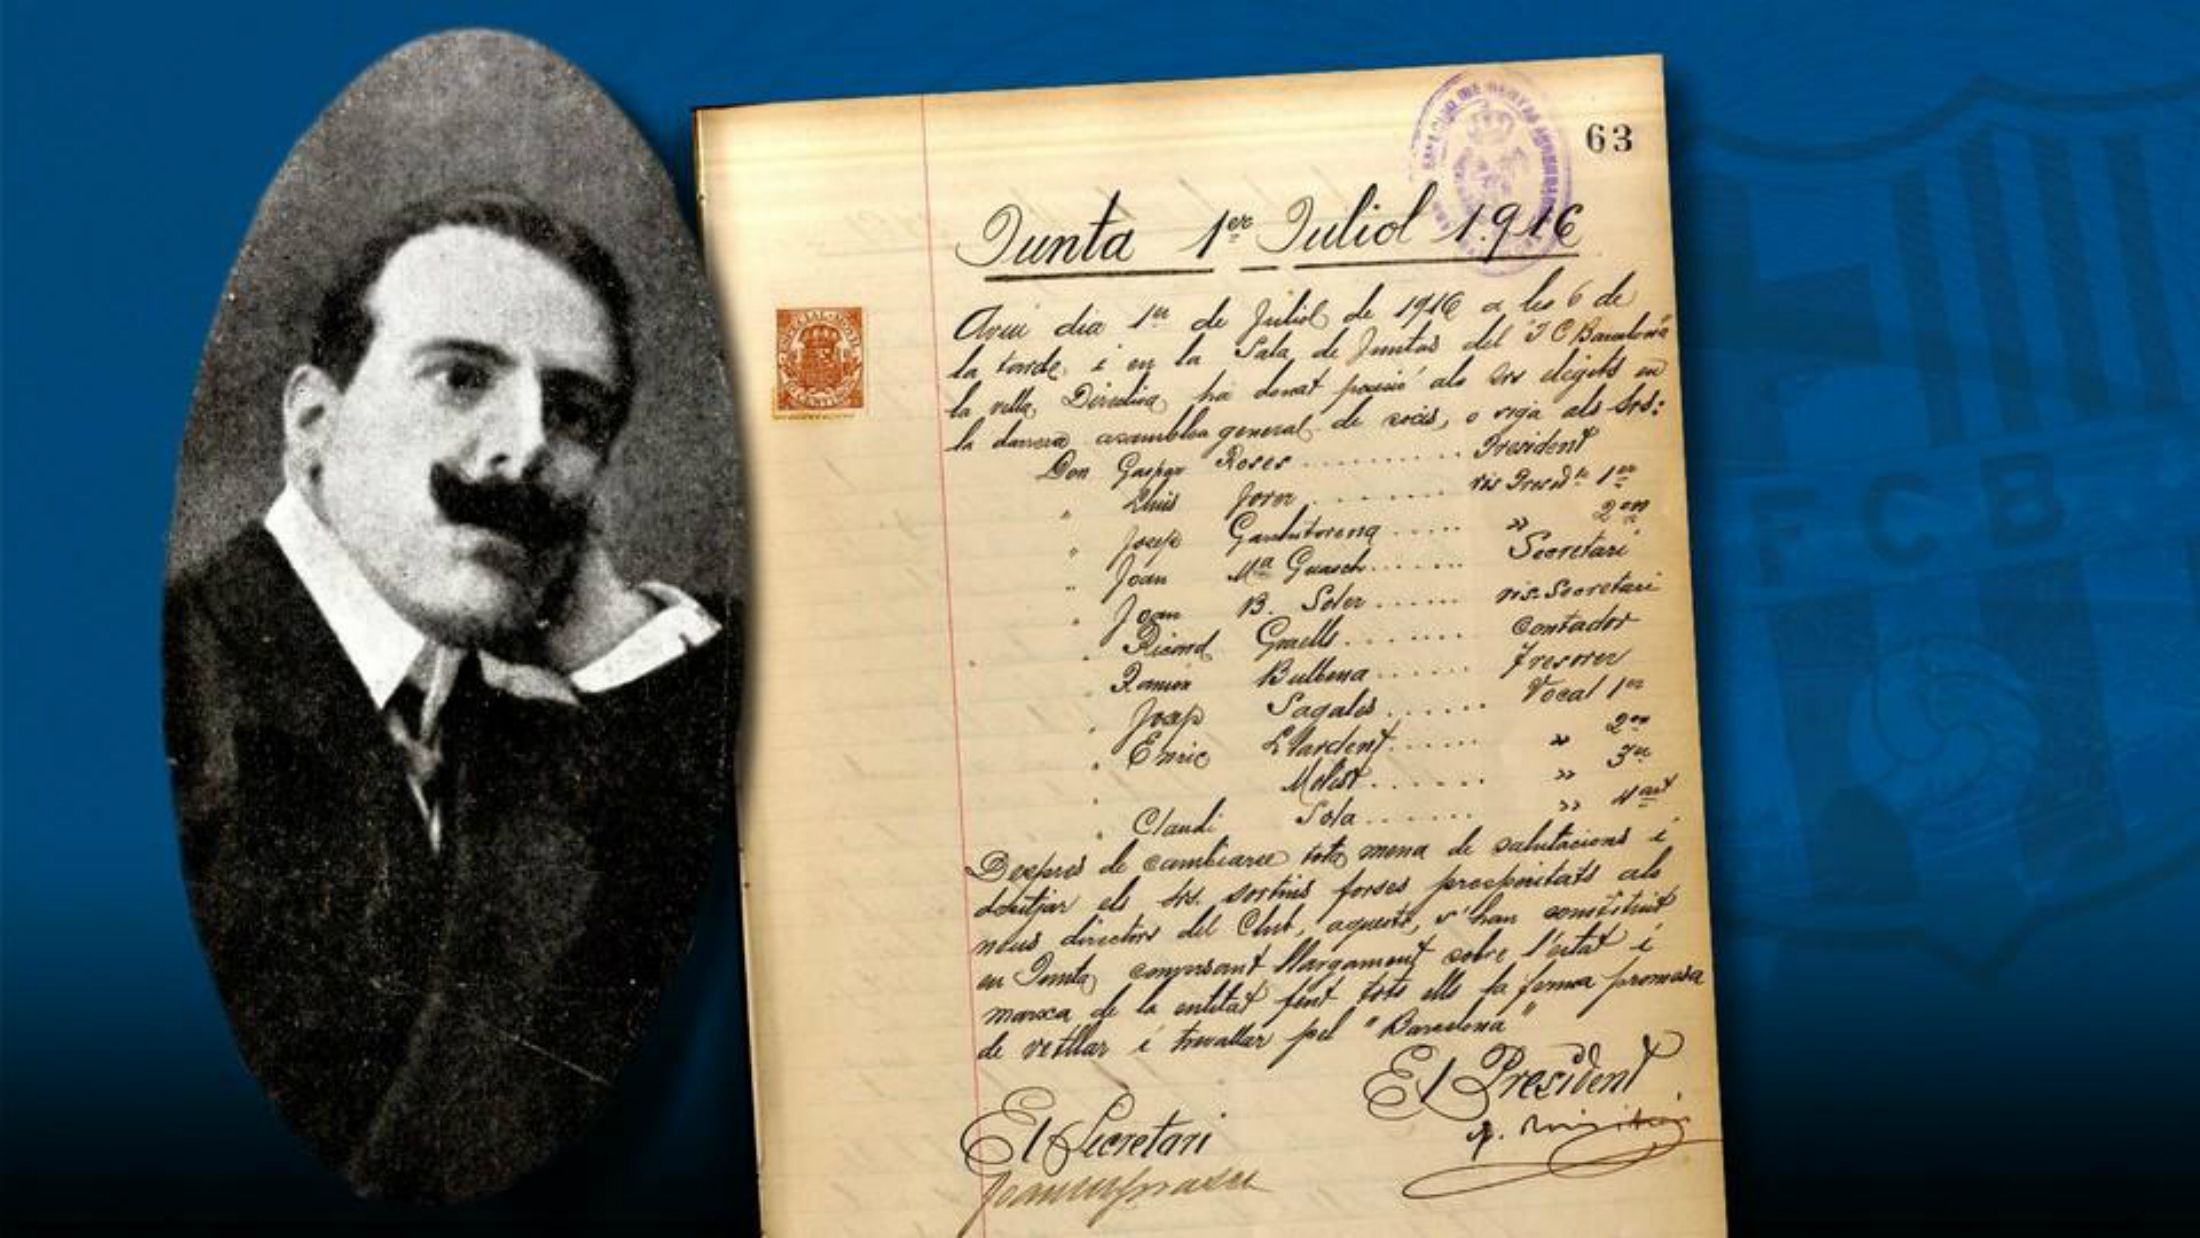 63
Junta 1er Juliol 1.916
Avui dia 1er de Juliol de 1916 a les 6 de
la tarde, i en la Sala de Juntas del F C Barcelona
la vella Directiva, ha donat posesió als srs elegits en
la darrera asamblea general de socis, o sigа als Srs:
Don Gaspar Roses ........ President
" Lluis Jover ........ vis Presidte 1er
" Josep Gambitorena ..... » 2on
" Joan Ma Guasch ....... Secretari
" Joan B. Soler ...... vis-Secretari
" Ricard Graells ....... Contador
" Ramon Bulbena ...... Tresorer
" Josep Sagales ...... Vocal 1er
" Enric Llardent ..... » 2on
" Molist ....... » 3er
" Claudi Sola ....... » 4art
Despres de cambiarse tota mena de salutacions i
desitjar els srs. sortins forses prosperitats als
nous directors del Club, aquests, s'han constituit
en Junta, conversant llargament sobre l'estat i
marxa de la entitat fent tots ells la ferma promesa
de vetllar i travallar pel "Barcelona"
El President
El Secretari
F C B